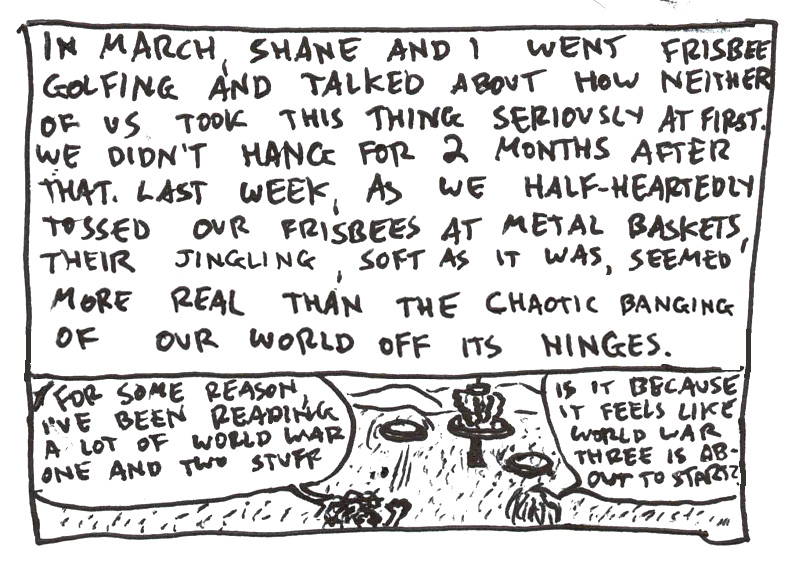 IN MARCH, SHANE AND I WENT FRISBEE
GOLFING AND TALKED ABOUT HOW NEITHER
OF US TOOK THIS THING SERIOUSLY AT FIRST.
WE DIDN'T HANG FOR 2 MONTHS AFTER
THAT. LAST WEEK, AS WE HALF-HEARTEDLY
TOSSED OUR FRISBEES AT METAL BASKETS,
THEIR JINGLING, SOFT AS IT WAS, SEEMED
MORE REAL THAN THE CHAOTIC BANGING
OF OUR WORLD OFF ITS HINGES.
FOR SOME REASON,
I'VE BEEN READING
A LOT OF WORLD WAR
ONE AND TWO STUFF
IS IT BECAUSE
IT FEELS LIKE
WORLD WAR
THREE IS AB-
OUT TO START?